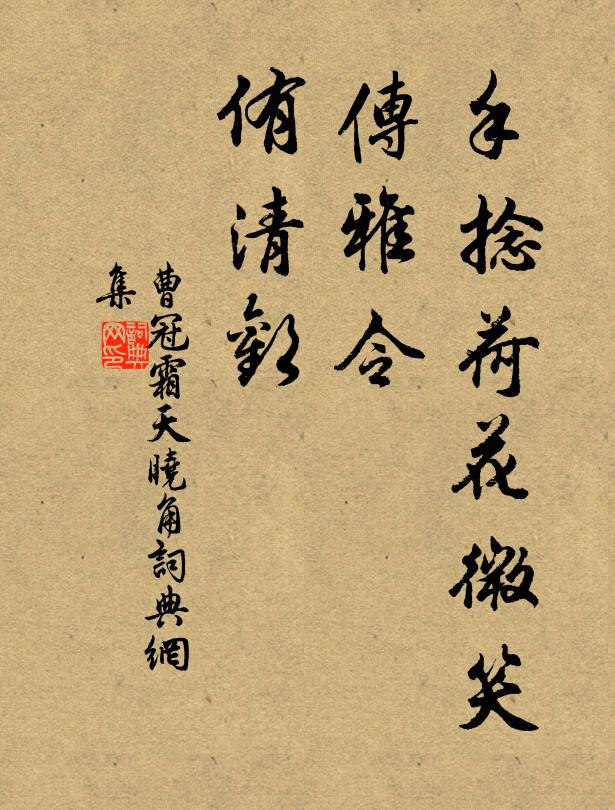 手捻荷花微笑
傳雅令
侑清歡
曹冠霜天曉角詞典網
集
詞典
网印